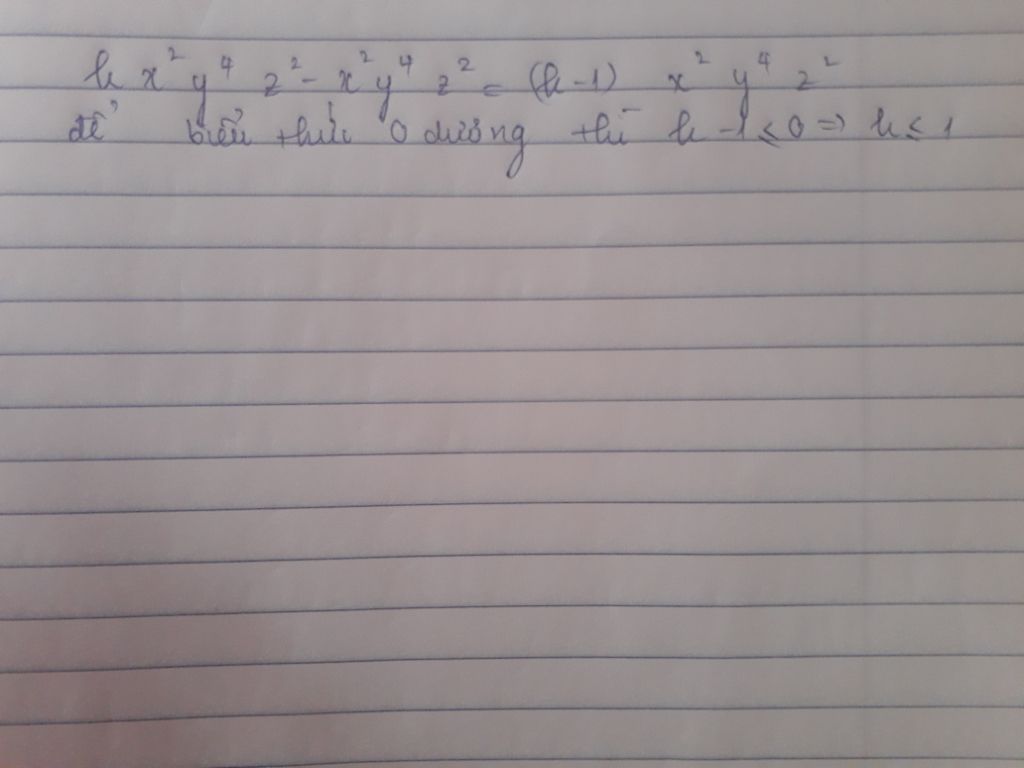 k x² y⁴ z² - x² y⁴ z² = (k-1) x² y⁴ z²
để biểu thức 0 dương thì k - 1 ≤ 0 => k ≤ 1